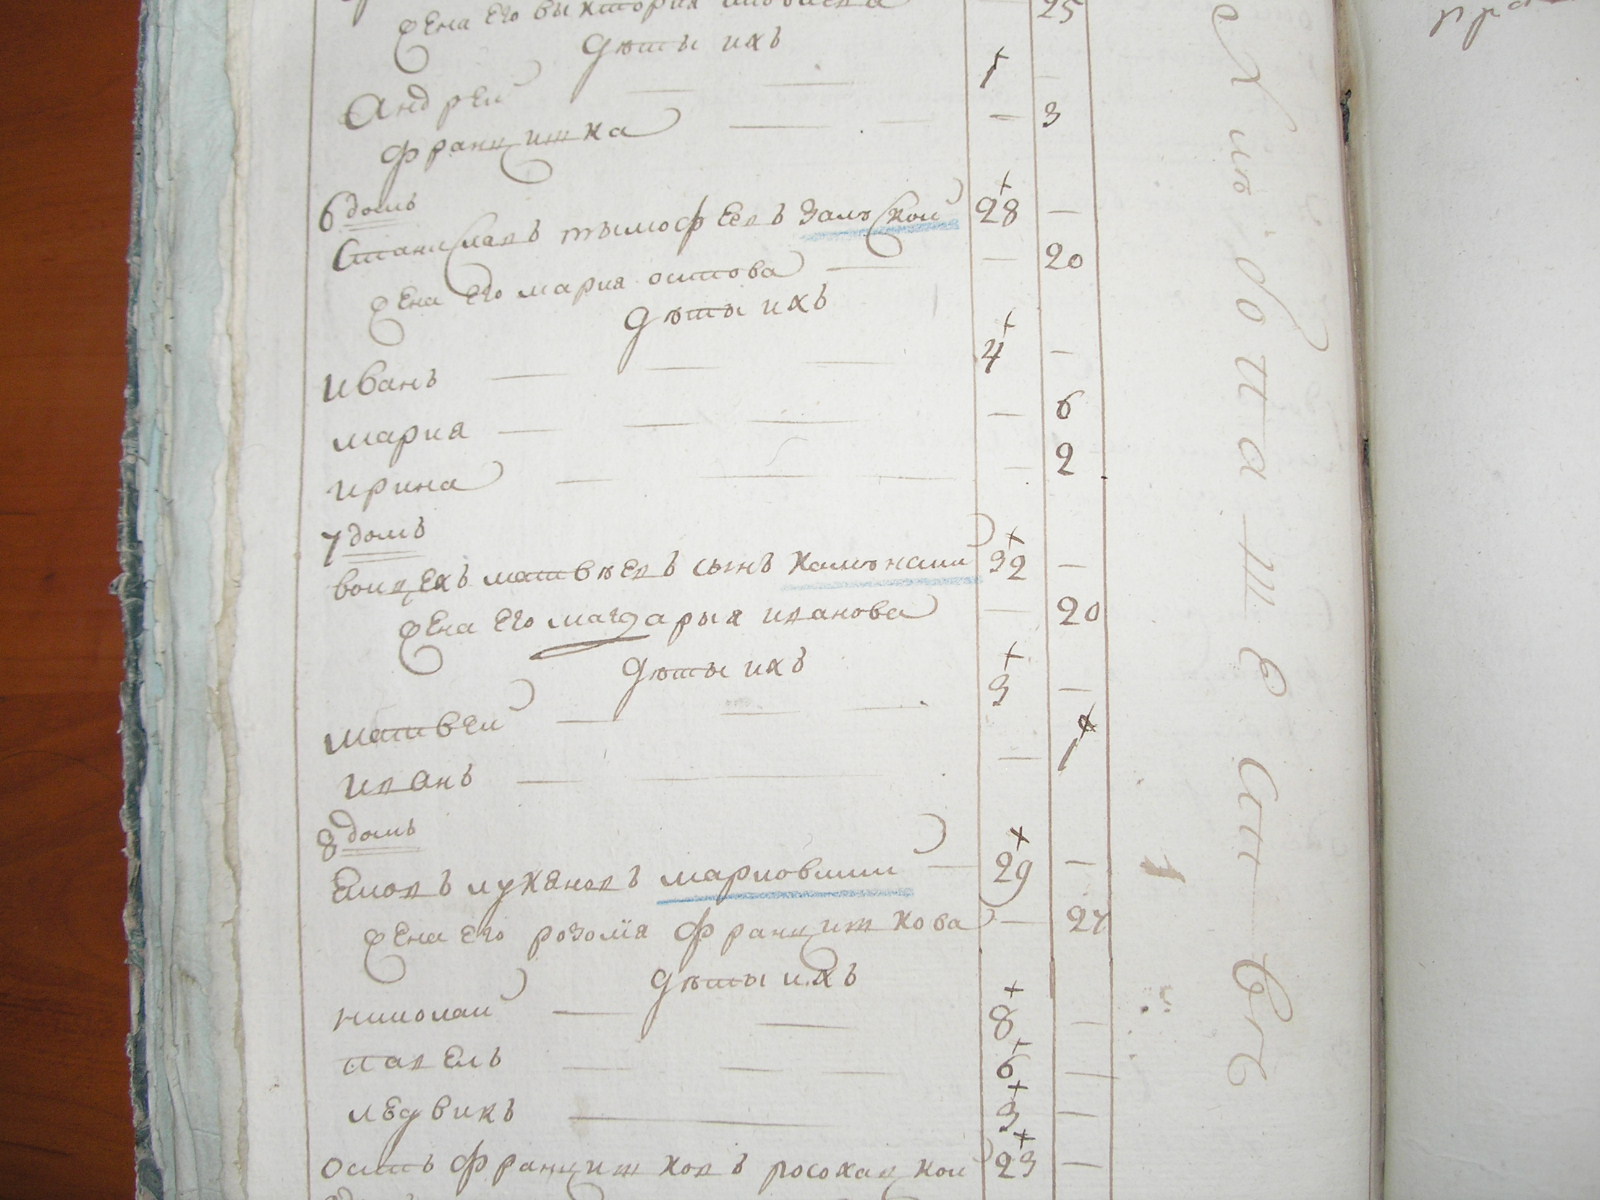 жена его виктория 25
дѣти ихъ
андреи 1 —
францишка — 3
6 домъ
Станиславъ тымофеевъ залѣскои 28 —
жена его мария осипова — 20
дѣти ихъ
иванъ 4 —
мария — 6
ирина — 2
7 домъ
воицехъ матвѣевъ сынъ 32 —
жена его магдарыя иванова — 20
дѣти ихъ
матвеи 3 —
иванъ — 1
8 домъ
лукяновъ 29 —
жена его розолія францишкова — 27
дѣти ихъ
николаи 8 —
павелъ 6 —
людвикъ 3 —
осипъ францишковъ росохавскои 23 —